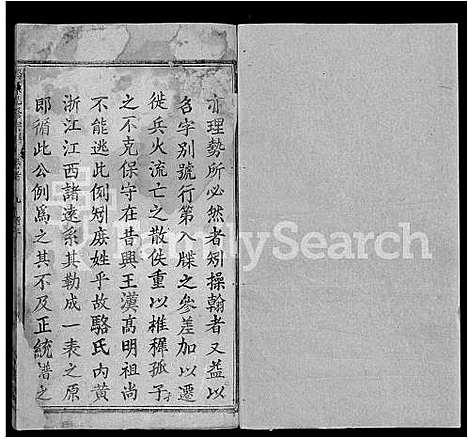 亦理勢所必然者矧操翰者又益以
名字別號行第入牒之參差加以遷
徙兵火流亡之散佚重以椎穉孤子
之不克保守在昔興王漢高明祖尚
不能逃此例矧庶姓乎故駱氏內黄
浙江江西諸遠系其勒成一表之原
即循此公例爲之其不及正統譜之
FamilySearch